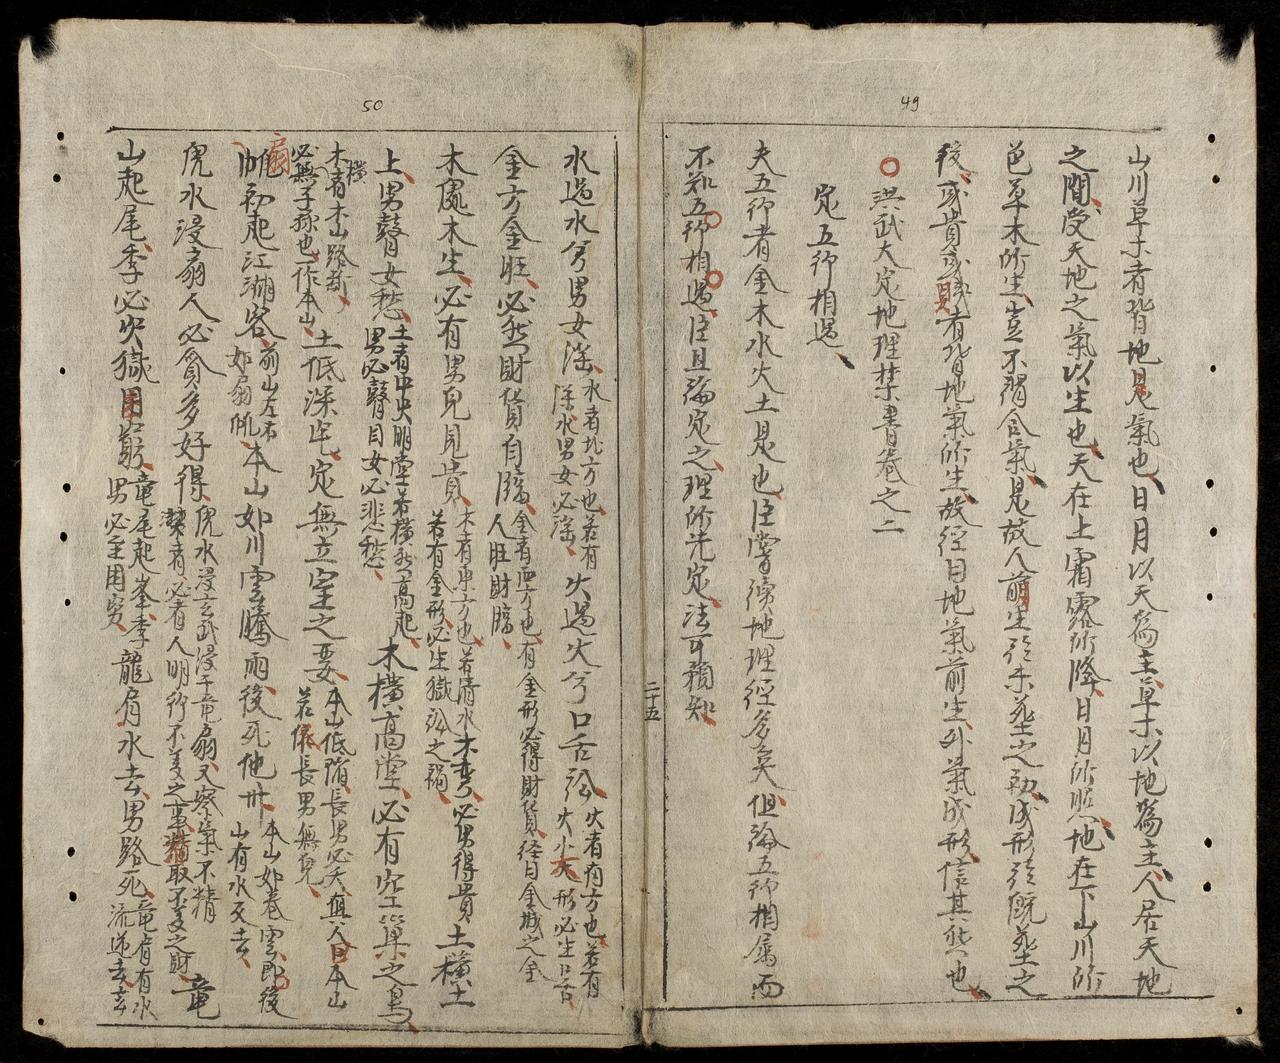 49
山川草木者皆地是氣也日月以天爲主草木以地爲主人居天地
之間受天地之氣以生也天在上霜露所降日月所照地在下山川所
邑草木所生豈不謂合氣是故人萌生於未葬之初成形於既葬之
後或貴或賤者皆地氣所生故經曰地氣前生外氣成形信其然也
洪武大定地理禁書卷之二
定五行相過
夫五行者金木水火土是也臣嘗讀地理經多矣但論五行相屬而
不知五行相過臣且論定之理所先定法可預知
二十五
50
水過水兮男女淫
水者北方也若有
深水男女必淫
火過火兮口舌訟
火者南方也若有
火尖形必生口舌
金方金旺必然財貨自臨
金者西方也有金形必得財貨経曰金城之金
人旺財臨
木傍木生必有男兒見貴
木者東方也若清水
若有金形必生獄訟之禍
木旁必男得貴土橫土
上男瞽女愁
土者中央明堂若橫然高起
男必瞽目女必悲愁
木橫高堂必有空巢之鳥
木橫者木山路斷
必無子孫也一作本山
土低深宅定無立室之要
本山低陷長男必夭
若低長男無兒
帆初起江湖客
前山左右
如扇帆
本山如川雲騰雨後死他州
本山如卷雲即後
山有水反去
虎水浸扇人必貧多好得
虎水浸玄武浸于竜扇又察氣不精
必者人明行不美之取不美之財
竜
山起尾季必火獄困窮
竜尾起峯季
男必至困窮
龍肩水去男路死
竜肩有水
流逆去玄